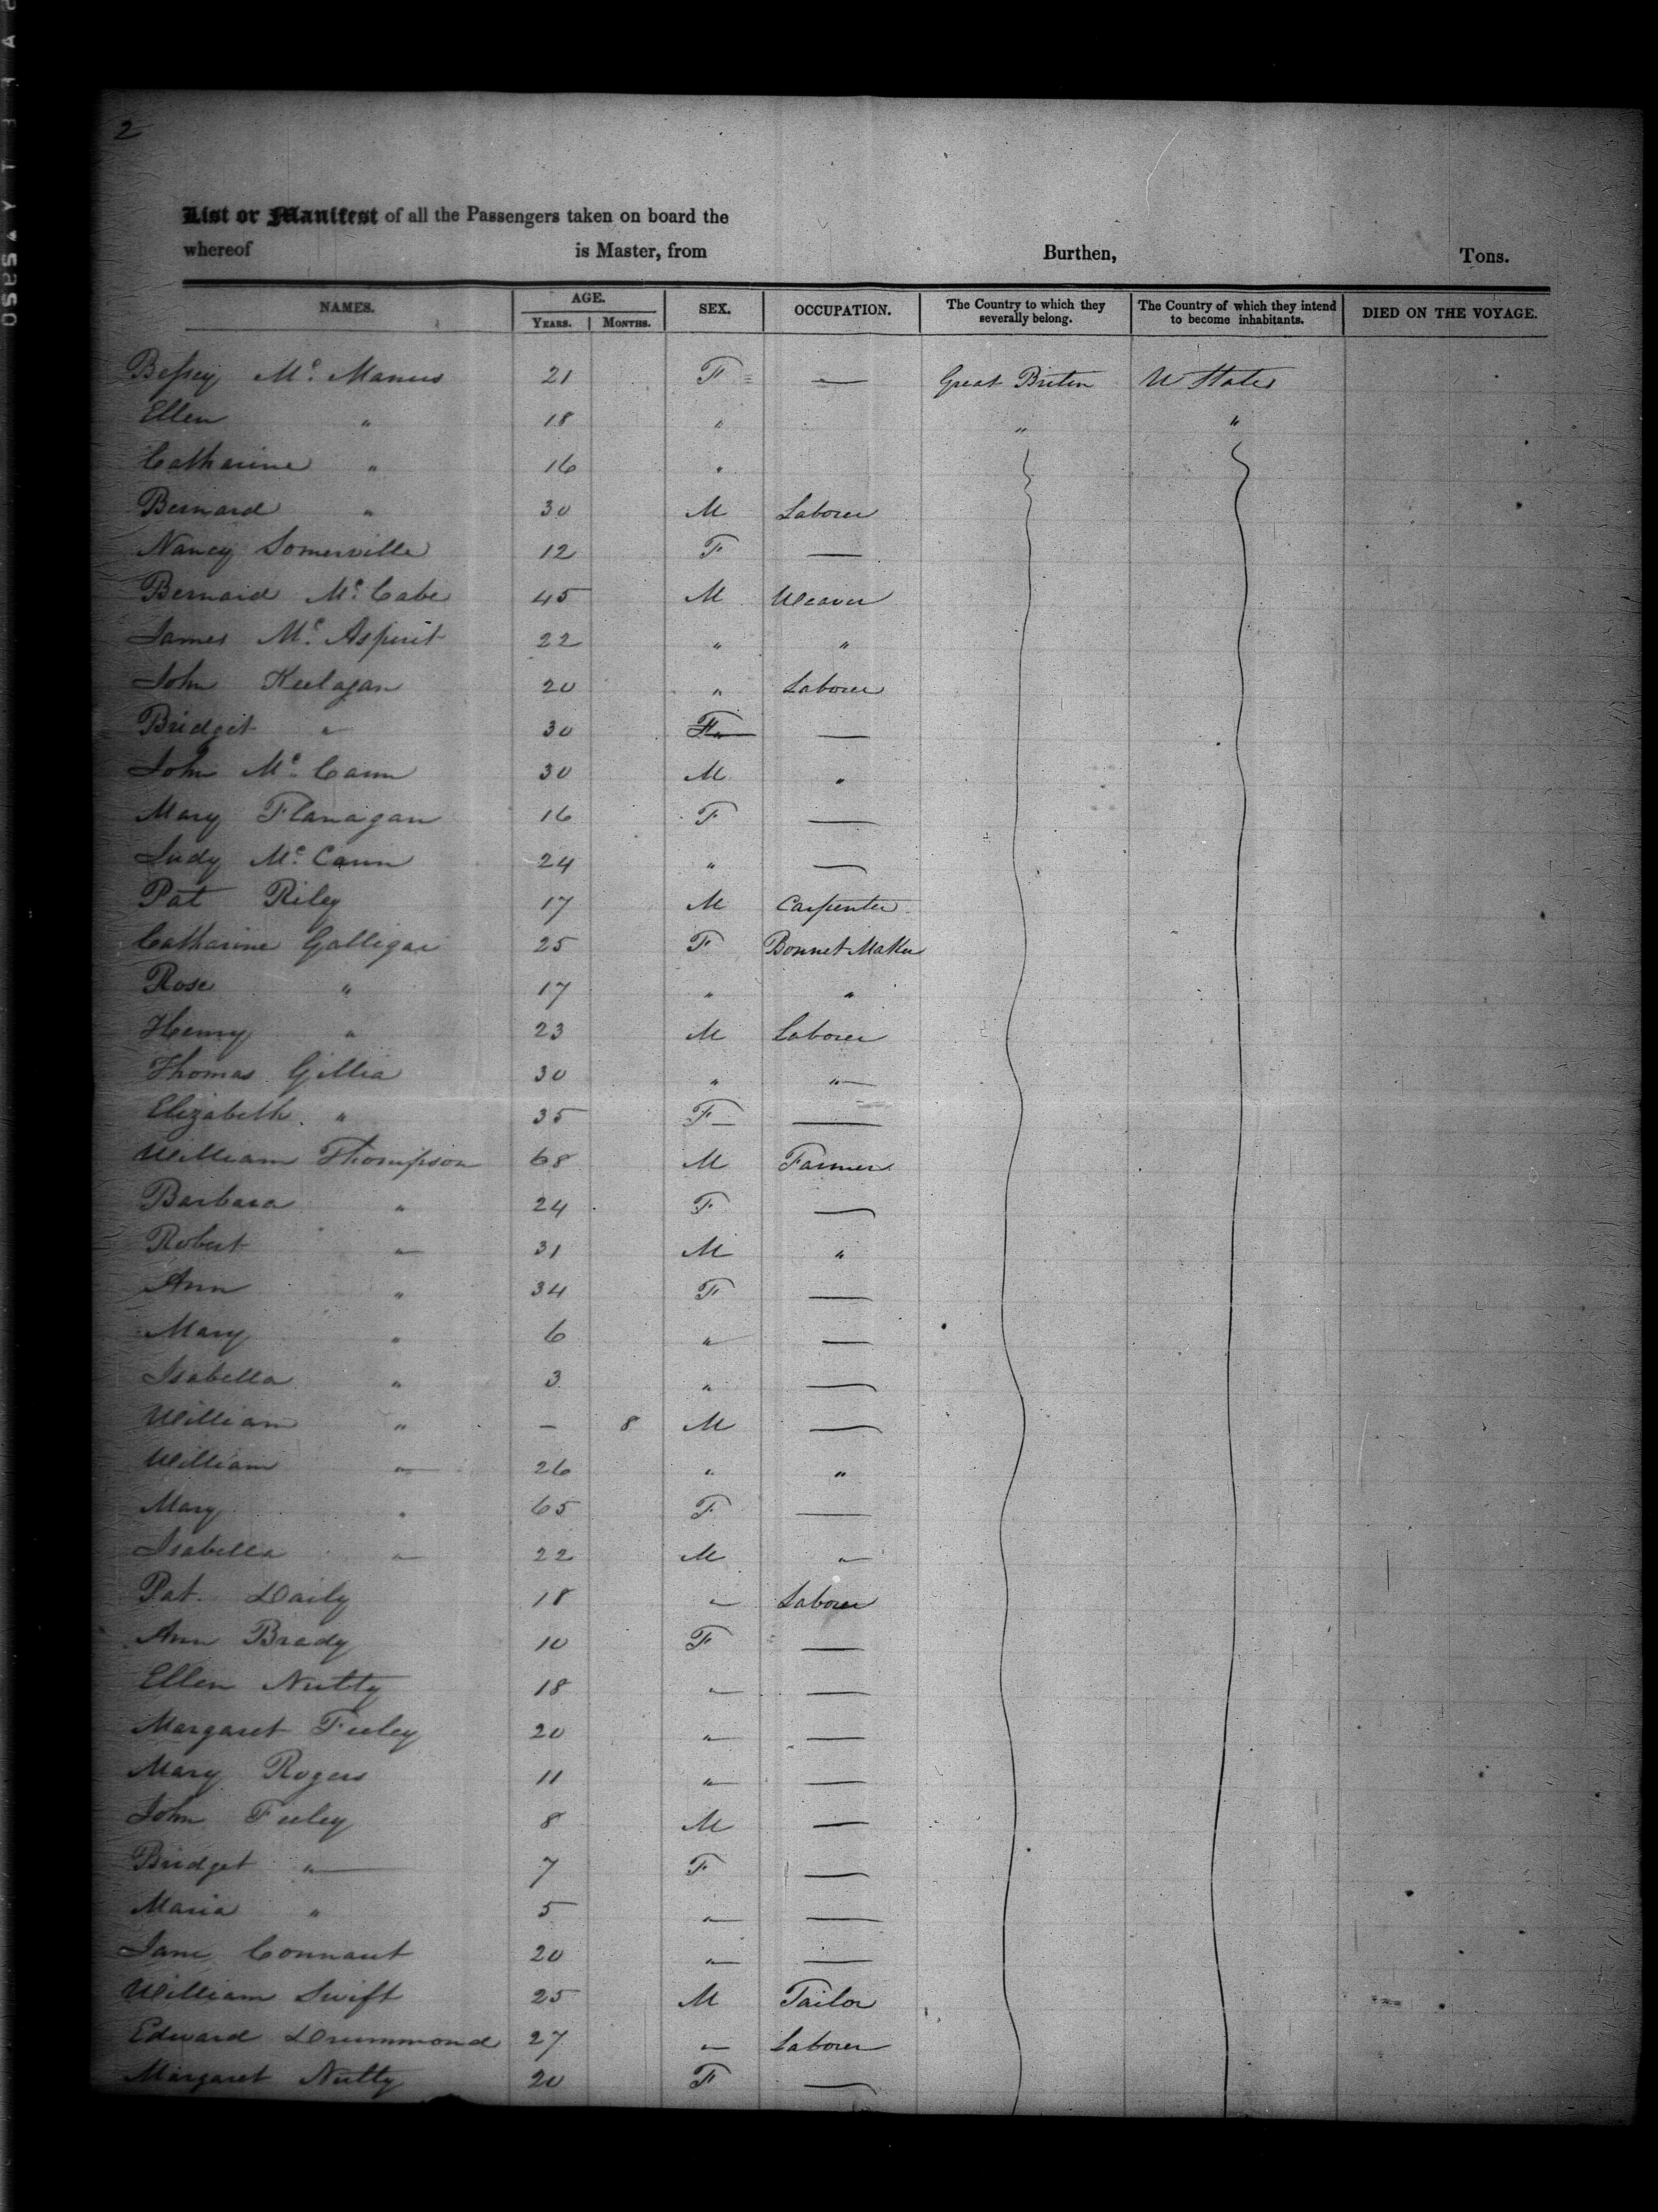 2
List or Manifest of all the Passengers taken on board the
whereof is Master, from Burthen, Tons.
NAMES. AGE. SEX. OCCUPATION. The Country to which they severally belong. The Country of which they intend to become inhabitants. DIED ON THE VOYAGE.
YEARS. MONTHS.
Bessey Mc Manus 21 F — Great Briten U States
Ellen " 18 " " "
Catharine " 16 "
Bernard " 30 M Laborer
Nancy Somerville 12 F —
Bernard Mc Cabe 45 M Weaver
James Mc Aspurit 22 " "
John Keelagan 20 " Laborer
Bridget " 30 F —
John Mc Cann 30 M "
Mary Flanagan 16 F —
Judy Mc Cann 24 " —
Pat Riley 17 M Carpenter
Catharine Galligan 25 F Bonnet Maker
Rose " 17 " "
Henry " 23 M Laborer
Thomas Gillia 30 " "
Elizabeth " 35 F —
William Thompson 68 M Farmer
Barbara " 24 F —
Robert " 31 M "
Ann " 34 F —
Mary " 6 " —
Isabella " 3 " —
William " — 8 M —
William " 26 " "
Mary " 65 F —
Isabella " 22 M "
Pat. Daily 18 " Laborer
Ann Brady 10 F —
Ellen Nutty 18 " —
Margaret Feeley 20 " —
Mary Rogers 11 " —
John Feeley 8 M —
Bridget " 7 F —
Maria " 5 " —
Jane Connaut 20 " —
William Swift 25 M Tailor
Edward Drummond 27 " Laborer
Margaret Nutty 20 F —